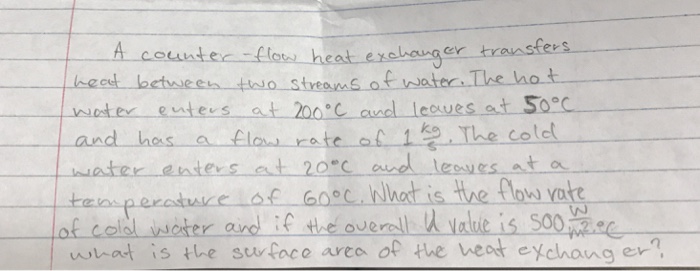 A counter-flow heat exchanger transfers
heat between two streams of water. The hot
water enters at 200°C and leaves at 50°C
and has a flow rate of 1 kg/s. The cold
water enters at 20°C and leaves at a
temperature of 60°C. What is the flow rate
of cold water and if the overall U value is 500 W/m²·°C
what is the surface area of the heat exchanger?